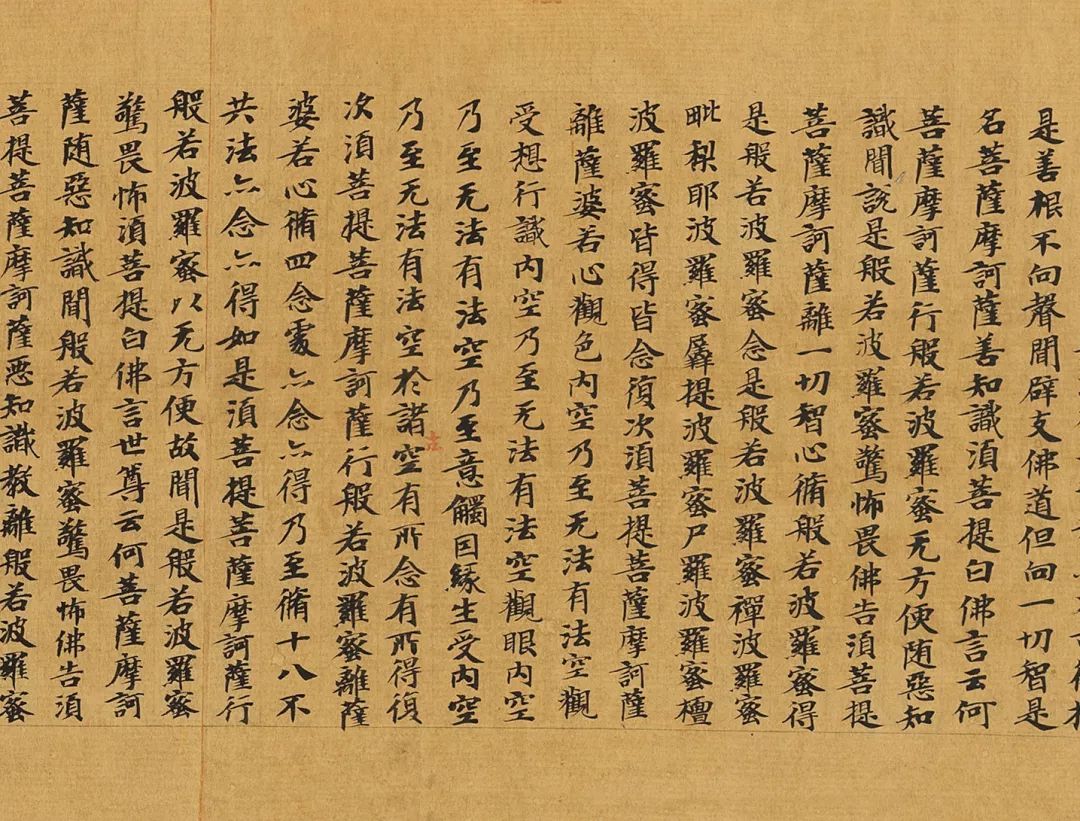 是善根不向聲聞辟支佛道但向一切智是
名菩薩摩訶薩善知識須菩提白佛言云何
菩薩摩訶薩行般若波羅蜜无方便随惡知
識聞說是般若波羅蜜驚怖畏佛告須菩提
菩薩摩訶薩離一切智心脩般若波羅蜜得
是般若波羅蜜念是般若波羅蜜禪波羅蜜
毗梨耶波羅蜜羼提波羅蜜尸羅波羅蜜檀
波羅蜜皆得皆念復次須菩提菩薩摩訶薩
離薩婆若心觀色內空乃至无法有法空觀
受想行識內空乃至无法有法空觀眼內空
乃至无法有法空乃至意觸因緣生受內空
乃至无法有法空於諸空有所念有所得復
次須菩提菩薩摩訶薩行般若波羅蜜離薩
婆若心脩四念處亦念亦得乃至脩十八不
共法亦念亦得如是須菩提菩薩摩訶薩行
般若波羅蜜以无方便故聞是般若波羅蜜
驚畏怖須菩提白佛言世尊云何菩薩摩訶
薩随惡知識聞般若波羅蜜驚畏怖佛告須
菩提菩薩摩訶薩惡知識教離般若波羅蜜